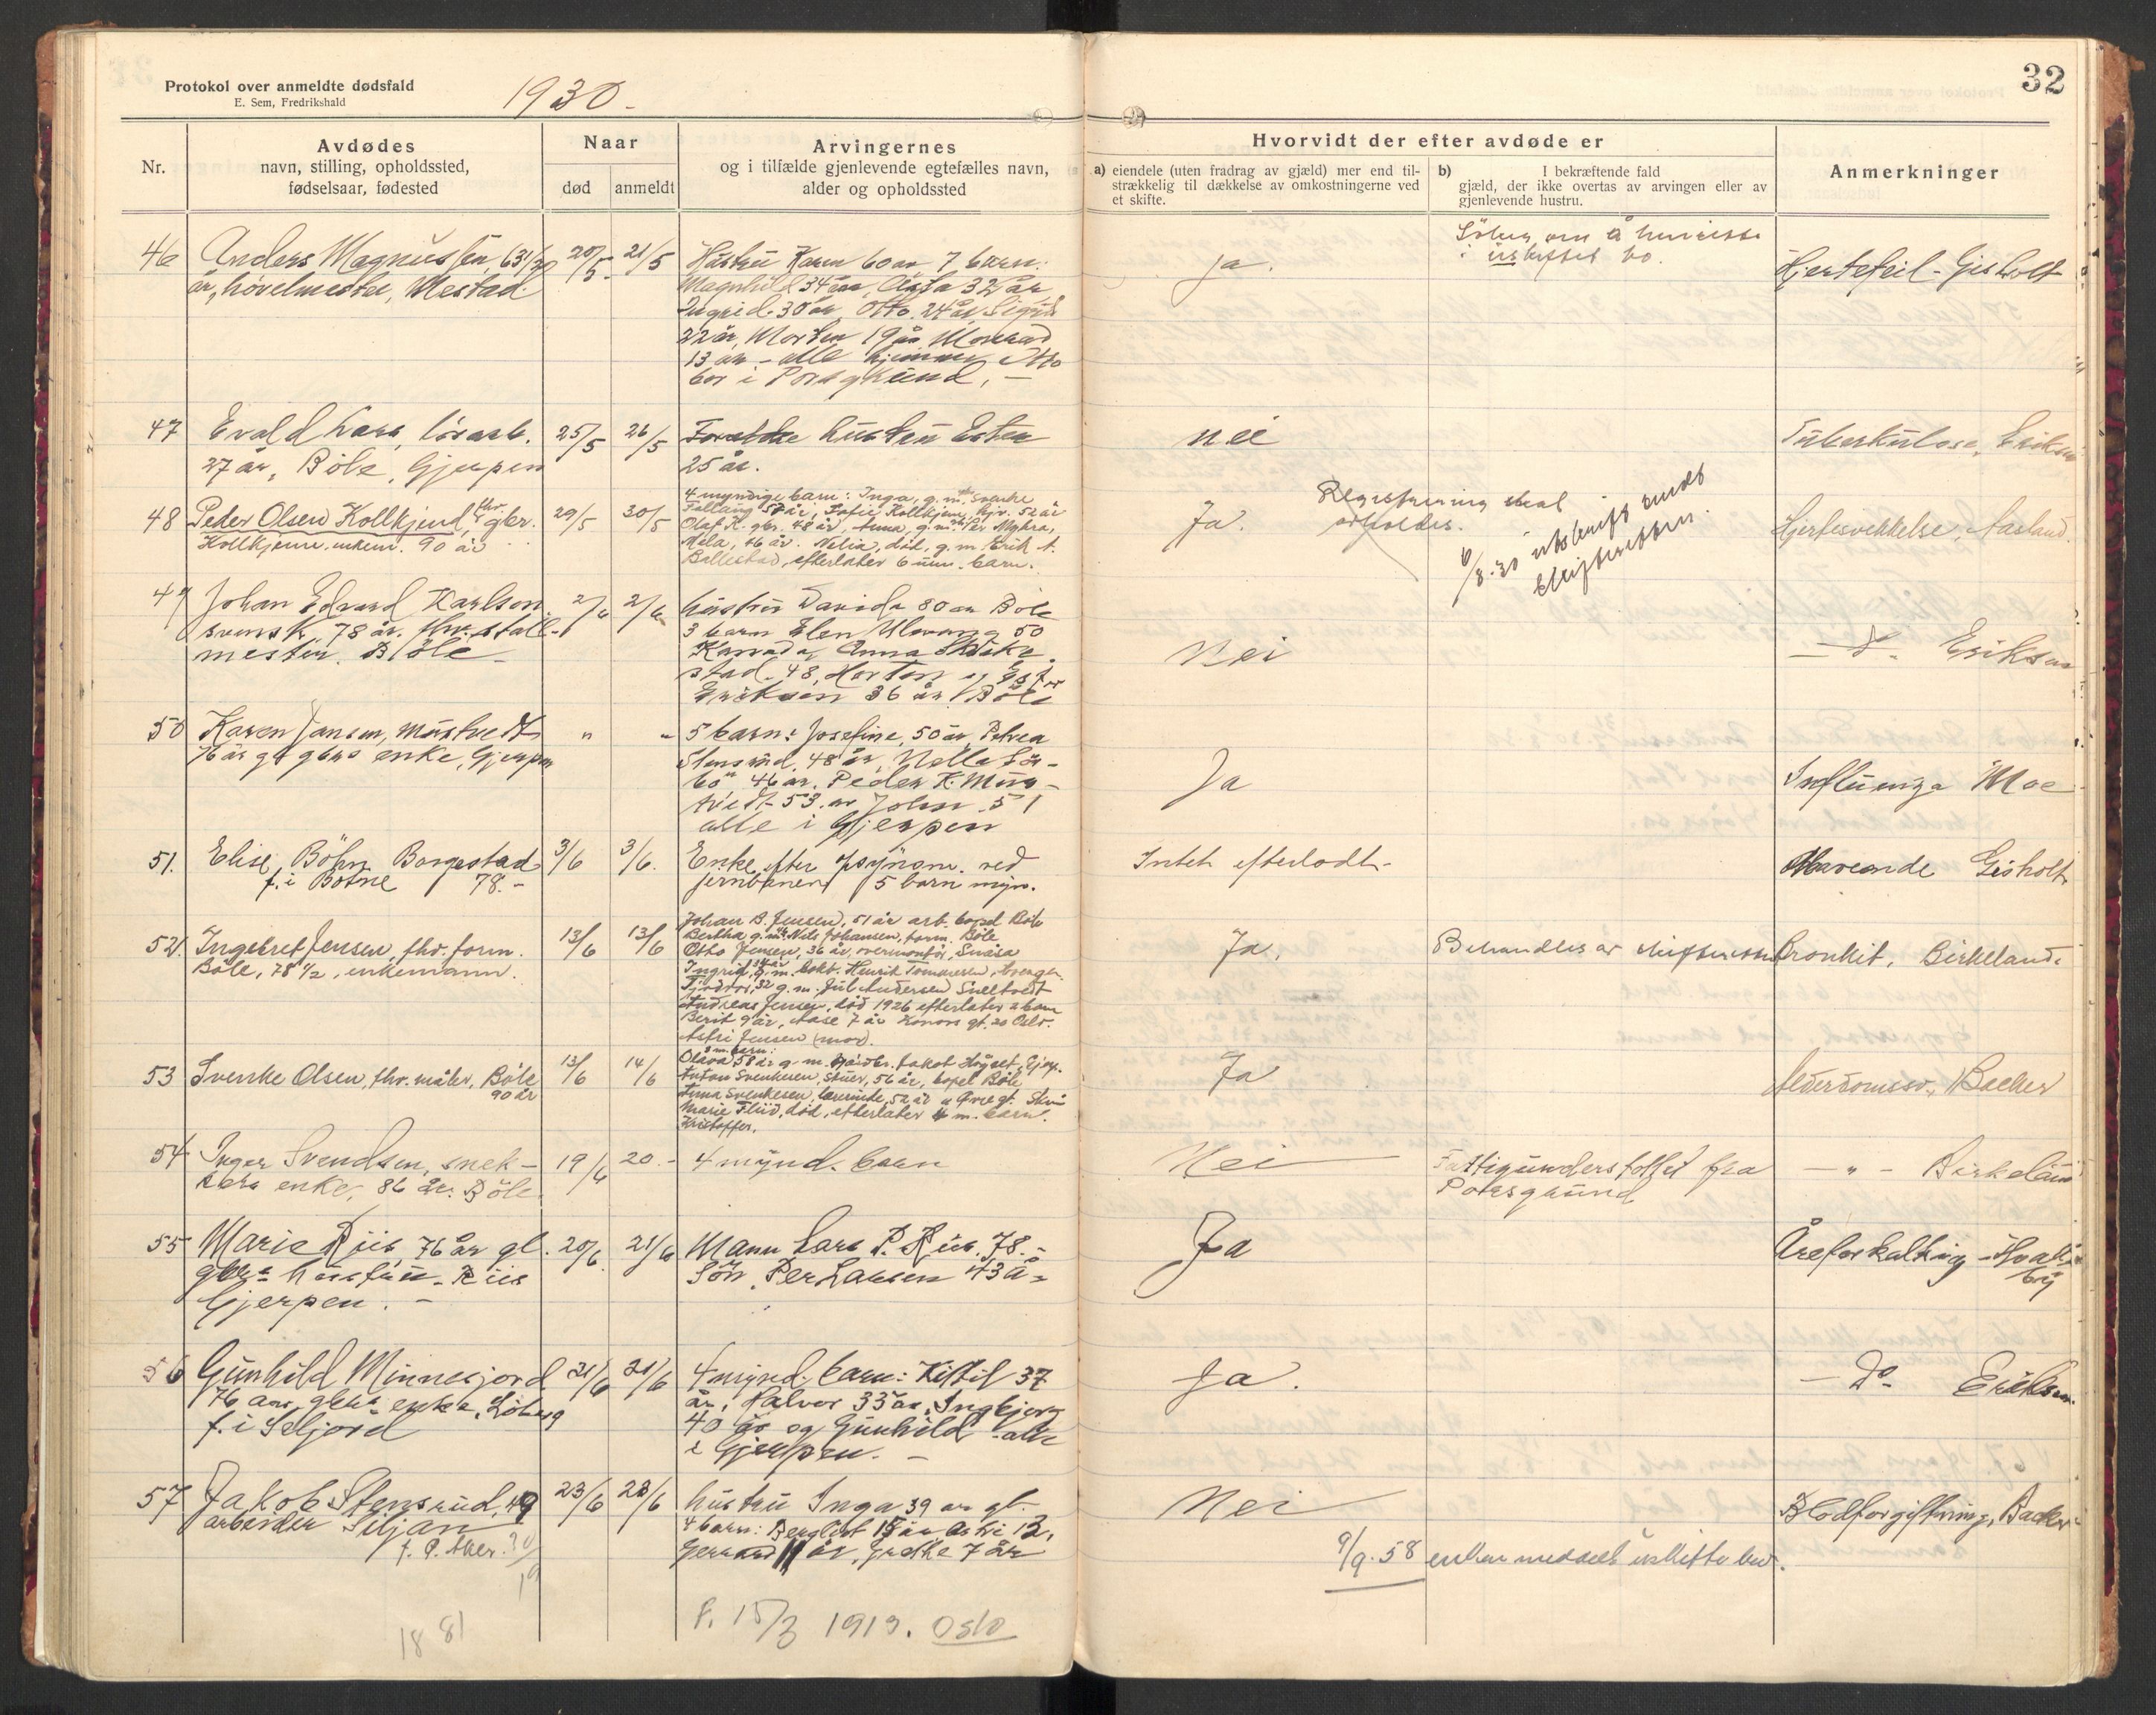 Protokol over anmeldte dødsfald
E. Sem, Fredrikshald
1930.
32
Nr.
Avdødes
navn, stilling, opholdssted,
fødselsaar, fødested
Naar
død
anmeldt
Arvingernes
og i tilfælde gjenlevende egtefælles navn,
alder og opholdssted
Hvorvidt der efter avdøde er
a) eiendele (uten fradrag av gjæld) mer end til-
strækkelig til dækkelse av omkostningerne ved
et skifte.
b) I bekræftende fald
gjæld, der ikke overtas av arvingen eller av
gjenlevende hustru.
Anmerkninger
46
Anders Magnussen, 63
år, høvelmester, Mestad
20/5
21/5
Hustru Karen 60 år 7 barn:
Magnhild 34 år, Aasta 32 år
Ingrid 30 år, Otto 24 år, Sigrid
22 år, Morten 19 år,
13 år - alle hjemme, Otto
bor i Porsgrund, -
Ja.
i uskiftet bo.
Hjertefeil - Gisholt
47
Evald
27 år, Böle, Gjerpen
25/5
26/5
hustru Ester
25 år.
nei
Tuberkulose,
48
Peder Olsen Kollkjend, fhv. gbr.
enkem. 90 år
29/5
30/5
4 myndige barn: Inga, g. m. Svenke
Olaf K. gbr. 48 år, Anna, g. m.
Mæla, 46 år. Nelia, død, g. m. Erik
Ballestad, efterlater 6 barn.
Ja.
Registrering skal
6/8.30 utskrift sendt
skifteretten.
Hjertesvekkelse, Aasland.
49
Johan Edvard Karlsen
svensk, 78 år. fhv. stall-
mester. Böle
2/6
2/6
hustru Davida 80 år Böle
3 barn Elen Ulvang 50
Anna
stad 48, Horten og Ester
Eriksen 36 år Böle
Nei
Eriksen
50
Karen Jansen, Mustvedt
76 år gl gbrs enke, Gjerpen
"
"
5 barn: Josefine, 50 år, Petrea
Stensrud, 48 år,
46 år. Peder K. Mus-
tvedt 53 år John 51
alle i Gjerpen
Ja
Influenza Moe
51.
Elise Böhn Borgestad
f. i Botne 78.-
3/6
3/6.
Enke efter opsynsm. ved
jernbanen 5 barn myn.
Intet efterladt-
Gisholt
52.
Ingebret Jensen, fhv. form.
Böle, 78 1/2, enkemann.
13/6
13/6
Johan B. Jensen, 51 år arb. bopel Böle
Bertha g. m. Nils Johansen, form. Böle
Otto Jensen, 36 år,
Ingrid, g. m. Henrik
32 g. m. Jul. Andersen
Andreas Jensen, død 1926 efterlater 2 barn
Berit 9 år, Aase 7 år gt. 20 Oslo.
Jensen (mor).
Ja.
Behandles av skifteretten
Bronkit, Birkeland.
53
Svenke Olsen, fhv. måler, Böle
90 år
13/6
14/6
3 m. barn:
Olava 58 år g. m. gårdbr. Jakob
Anton Svenkesen, 56 år, bopel Böle
Anna Svenkesen, lærerinde, 52 år
Marie død, efterlater 4 m. barn
Kristoffer.
Ja
Alderdomssv., Backer
54
Inger Svendsen, snek-
kers enke, 86 år. Böle.
19/6
20.-
4 mynd. barn
Nei
Fattigunderstøttet fra
Porsgrund
- " - Birkeland
55
Marie Riis 76 år gl.
gbrs hustru - Riis
Gjerpen. -
20/6.
21/6
Mann Lars P. Riis. 78.-
Sön Per Larsen 43 år
Ja
Åreforkalkning -
56
Gunhild Minnesjord
76 år, gbrs enke,
f. i Seljord
21/6
21/6
4 mynd. barn: Kittil 37
år, Halvor 33 år, Ingebjorg
40 år og Gunhild - alle
i Gjerpen. -
Ja.
- Do - Eriksen.
57
Jakob Stensrud, 49
arbeider Siljan
23/6
23/6
hustru Inga 39 år gl.
4 barn: Bergliot 15 år Astri 13,
11 år, Grethe 7 år
Nei
9/9.58 enken meddelt uskifte bev.
Blodforgiftning, Backer
1881
f. 15/3 1913. Oslo